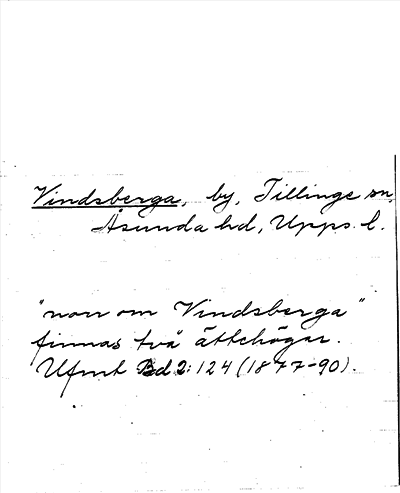 Vindsberga, by, Tillinge sn,
Åsunda hd, Upps. l.
"norr om Vindsberga"
finnas två ättehögar.
Ufmt Bd 2: 124 (1877-90).